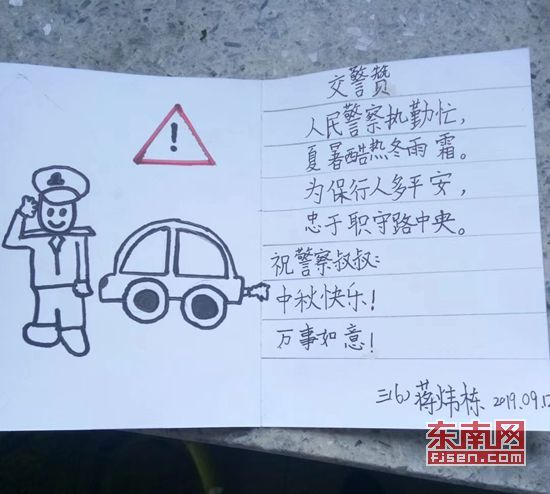 交警赞
人民警察执勤忙，
夏暑酷热冬雨霜。
为保行人多平安，
忠于职守路中央。
祝警察叔叔：
中秋快乐！
万事如意！
三(6) 蒋炜栋 2019.09.12
!
东南网
fjsen.com